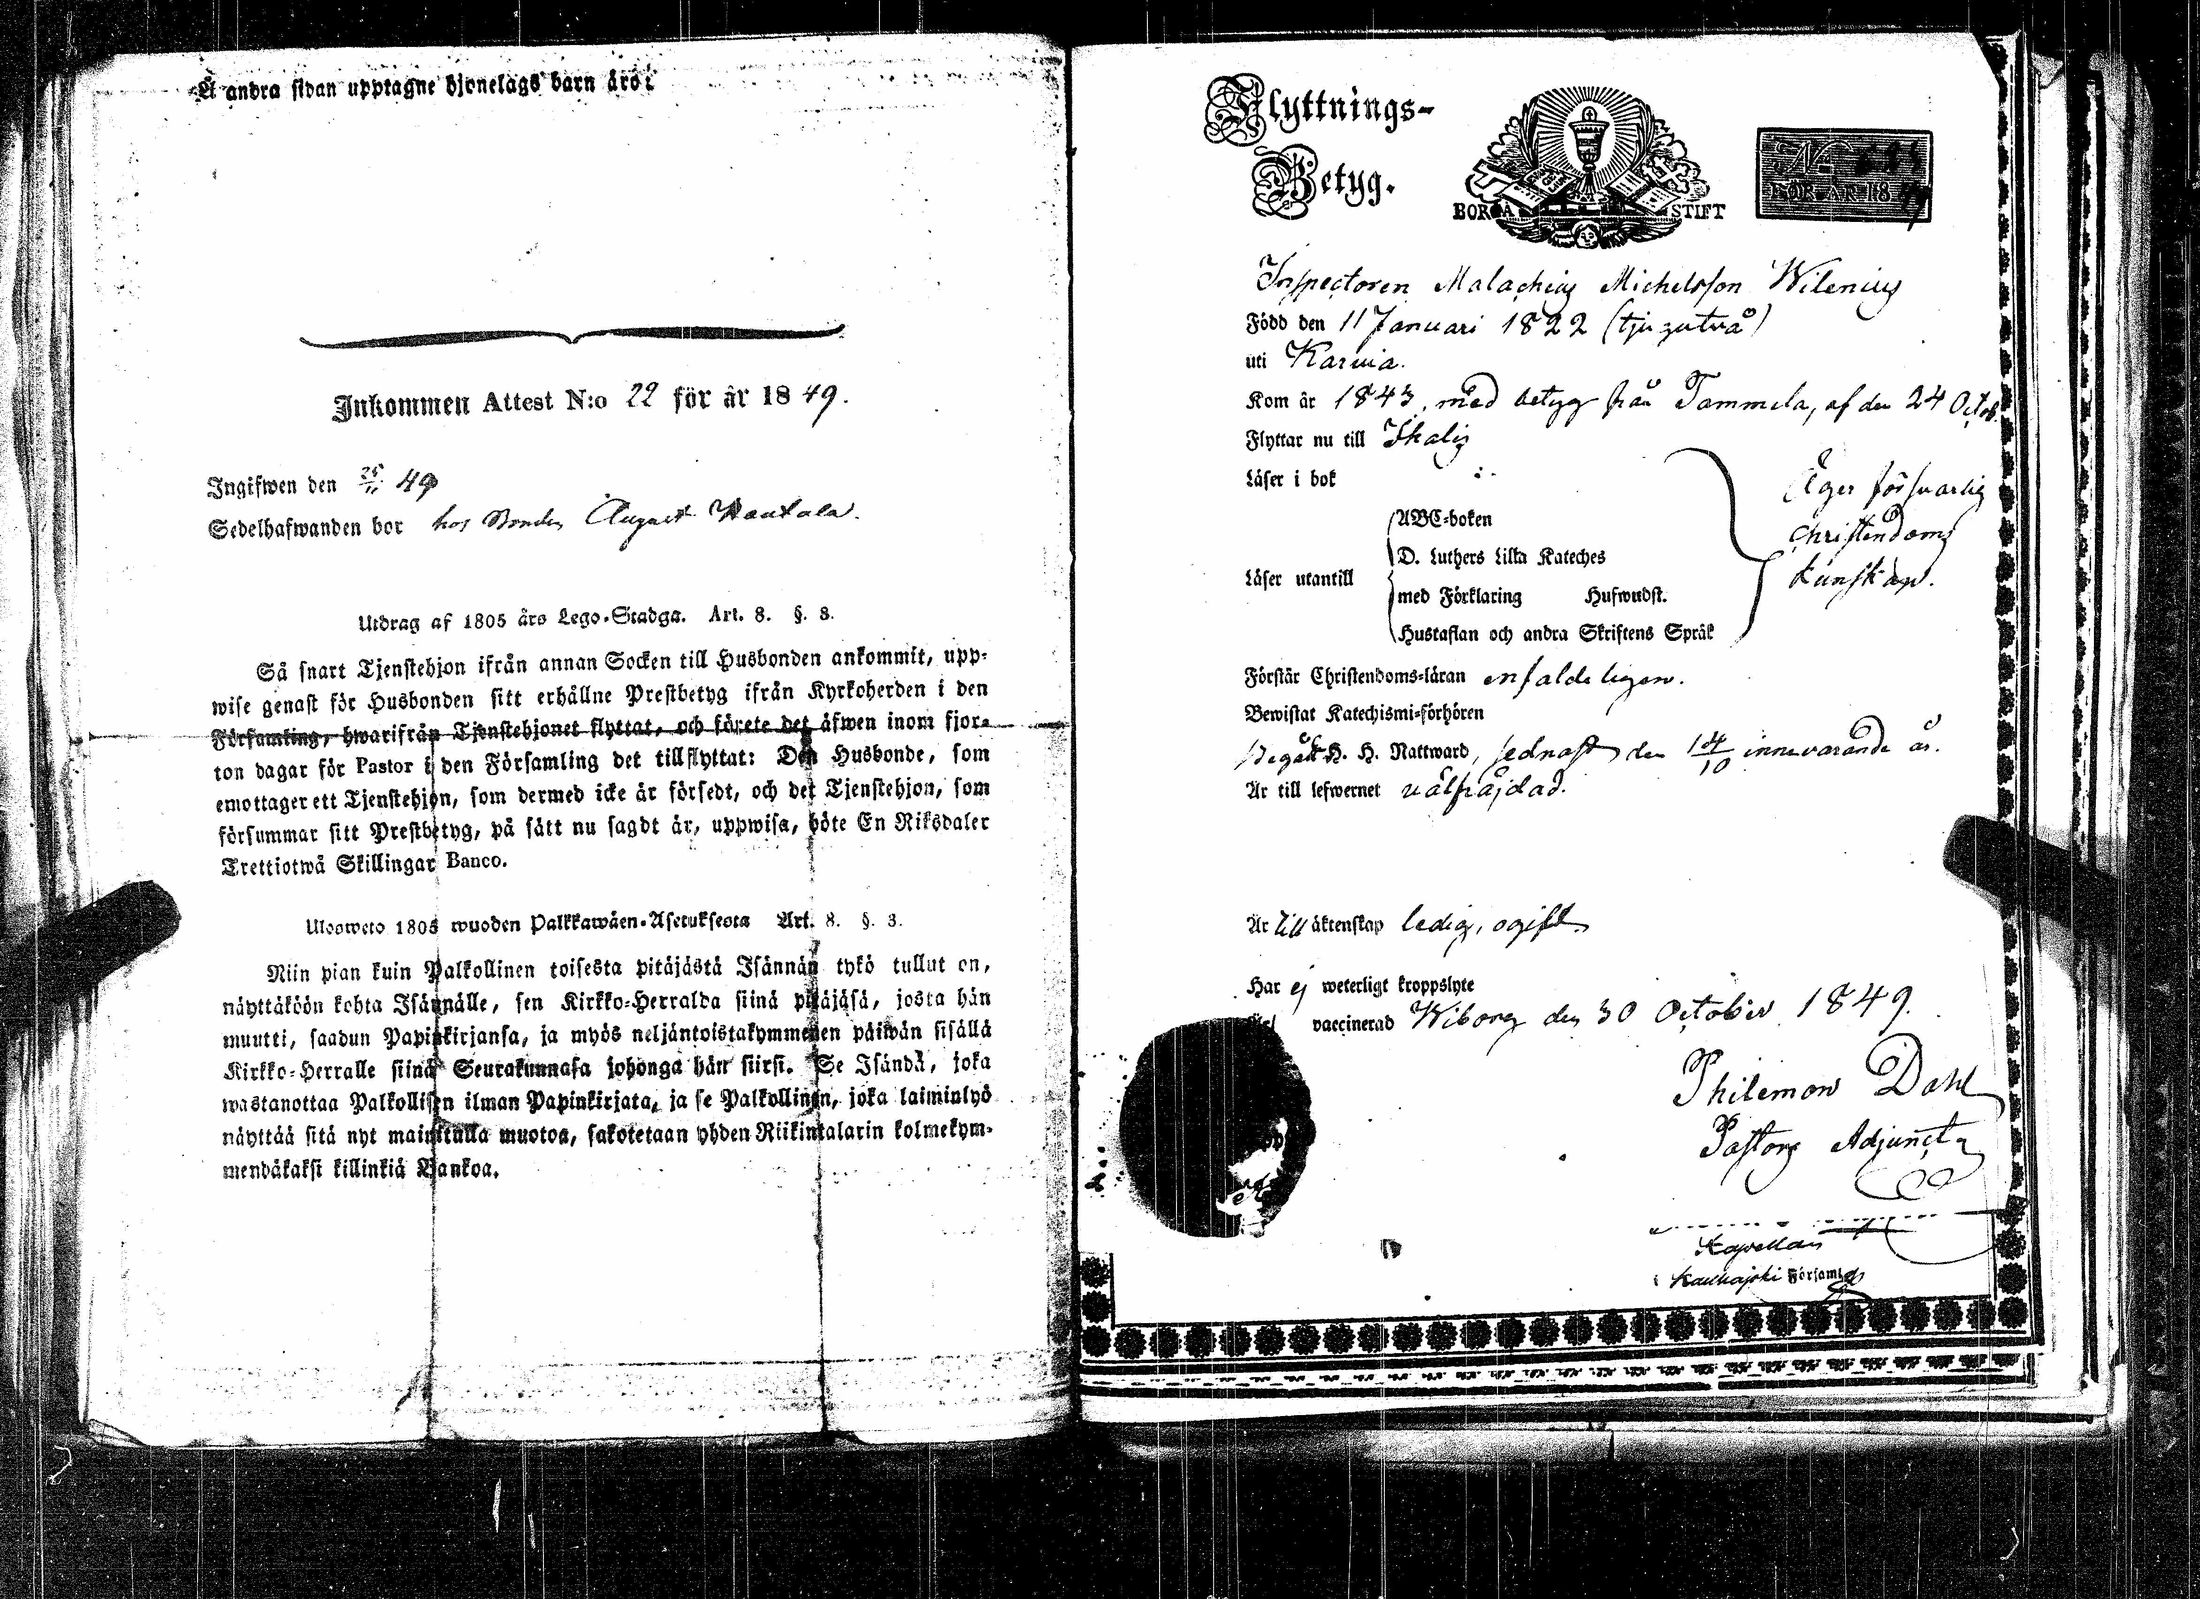 Å andra sidan upptagne hjonelags barn äro:
Inkommen Attest N:o 22 för år 1849.
Ingifwen den 25/11 49
Sedelhafwanden bor hos Bonden August
Utdrag af 1805 års Lego-Stadga. Art. 8. §. 3.
Så snart Tjenstehjon ifrån annan Socken till Husbonden ankommit, upp-
wise genast för Husbonden sitt erhållne Prestbetyg ifrån Kyrkoherden i den
Församling, hwarifrån Tjenstehjonet flyttat, och förete det äfwen inom fjor-
ton dagar för Pastor i den Församling det tillflyttat: Den Husbonde, som
emottager ett Tjenstehjon, som dermed icke är försedt, och det Tjenstehjon, som
försummar sitt Prestbetyg, på sätt nu sagdt är, uppwisa, böte En Riksdaler
Trettiotwå Skillingar Banco.
Ulosweto 1805 wuoden Palkkawäen-Asetuksesta Art. 8. §. 3.
Niin pian kuin Palkollinen toisesta pitäjästä Isännän tykö tullut on,
näyttäköön kohta Isännälle, sen Kirkko-Herralda siinä pitäjäsä, josta hän
muutti, saadun Papinkirjansa, ja myös neljäntoistakymmenen päiwän sisällä
Kirkko-Herralle siinä Seurakunnasa johonga hän siirsi. Se Isändä, joka
wastanottaa Palkollisen ilman Papinkirjata, ja se Palkollinen, joka laiminlyö
näyttää sitä nyt mainitulla muotoa, sakotetaan yhden Riikintalarin kolmekym-
mendäkaksi killinkiä Bankoa.
Flyttnings-
Betyg.
BORGÅ STIFT
N:o
FÖR ÅR 1849
Inspectoren Malachius Michelsson Wilenius
Född den 11 Januari 1822 (tjugutvå)
uti Karwia.
Kom år 1843, med betyg från Tammela, af den 24 Octob.
Flyttar nu till Ikalis
Läser i bok
Läser utantill
ABC-boken
D. Luthers Lilla Kateches
med Förklaring Hufwudst.
Hustaflan och andra Skriftens Språk
Äger försvarlig
Christendoms
kunskap.
Förstår Christendoms-läran enfaldeligen.
Bewistat Katechismi-förhören
Begått H. H. Nattward, sednast den 14/10 innevarande år.
Är till lefwernet välfräjdad.
Är till äktenskap ledig, ogift.
Har ej weterligt kroppslyte
vaccinerad Wiborg den 30 October 1849.
Philemon Dahl
Pastors Adjunct
Kapellan
i Kauhajoki Församl.